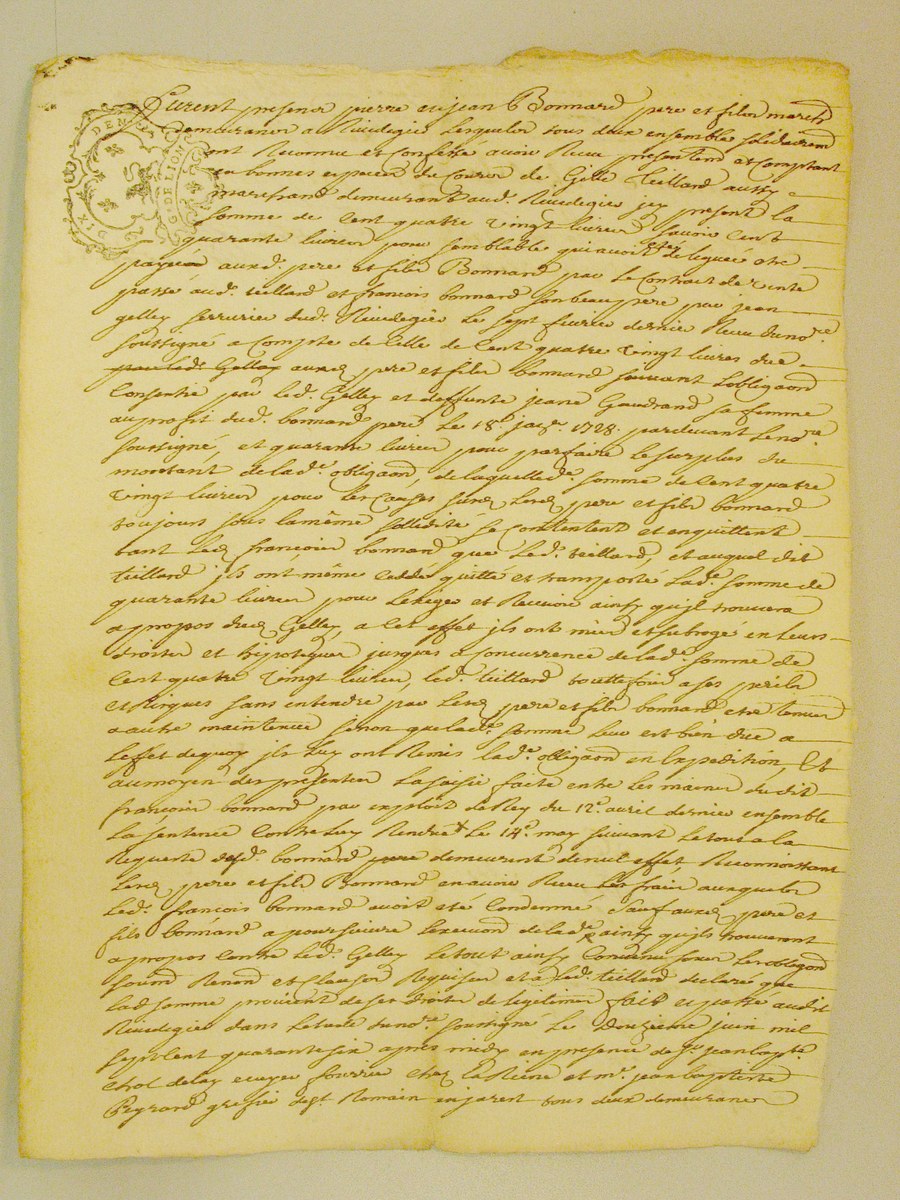 DEN
G. DE LION
SIX
Furent presens pierre et jean Bonnard pere et fils march
demeurans a Rivedegier lesquels tous deux ensemble solidairem
ont Reconnu et confessé avoir Receu presentem et comptant
en bonnes especes du cours de Gille Teillard aussy
marchand demeurant aud. Rivedegier jcy present la
somme de cent quatre vingt livres savoir cent
quarante livres pour semblable qui avoit esté deleguée etre
payée auxd. pere et fils Bonnard par le contrat de vente
passé aud. teillard et françois bonnard son beaupere par jean
gelley serrurier dud. Rivedegier le sept fevrier dernier Receu du no.re
soussigné a compte de celle de cent quatre vingt livres due
par led. Gelley auxd pere et fils bonnard suivant lobligaon
consentie par led. Gelley et deffunte jeane Gaudrand sa femme
au profit dud. bonnard pere le 18e janv. 1728. pardevant le no.re
soussigné, et quarante livres pour parfaire le surplus du
montant de lad.e obligaon, de laquelle d.e somme de cent quatre
vingt livres pour les causes susd. lesd pere et fils bonnard
toujours sous la même sollidité se contentent et enquittent
tant led françois bonnard que led. teillard, et auquel dit
teillard jls ont même ceddé quitté et transporté lad.e somme de
quarante livres pour lexiger et Recevoir ainsy qu'jl trouvera
a propos dud Gelley, a cet effet jls ont mis et subrogé en leurs
droits et hipoteques jusques a concurrence de lad.e somme de
cent quatre vingt livres, led. teillard touttefois a ses perils
et Risques sans entendre par lesd pere et fils bonnard etre tenus
a autre maintenue sinon que lad.e somme leur est bien due a
leffet de quoy jls luy ont Remis lad.e obligaon en Expedition, Et
au moyen des presentes la saisie faite entre les mains du dit
françois bonnard par exploit de Rey du 12e. avril dernier ensemble
la sentence contre luy Rendue le 14e. may suivant le tout a la
Requeste desd. bonnard pere demeurent de nul effet, Reconnoissant
lesd pere et fils Bonnard en avoir Receu les frais auxquels
led. françois bonnard avoit eté condemné sauf auxd pere et
fils bonnard a poursuivre lexecuon de lad.e ainsy qu'jls trouveront
a propos contre led. Gelley le tout ainsy convenu sous les obligaon
soum Renon et clauson Requises et a led. teillard declaré que
lad somme provient de ses droits de legitimes fait et passé audit
Rivedegier dans letude du no.re soussigné le douzieme juin mil
sept cent quarante six apres midy en presence de Sr. jean bapte
chol delay ecuyer fourrier chez la Reine et mr. jean baptiste
Peyrard greffier de St. Romain en jarest tous deux demeurans